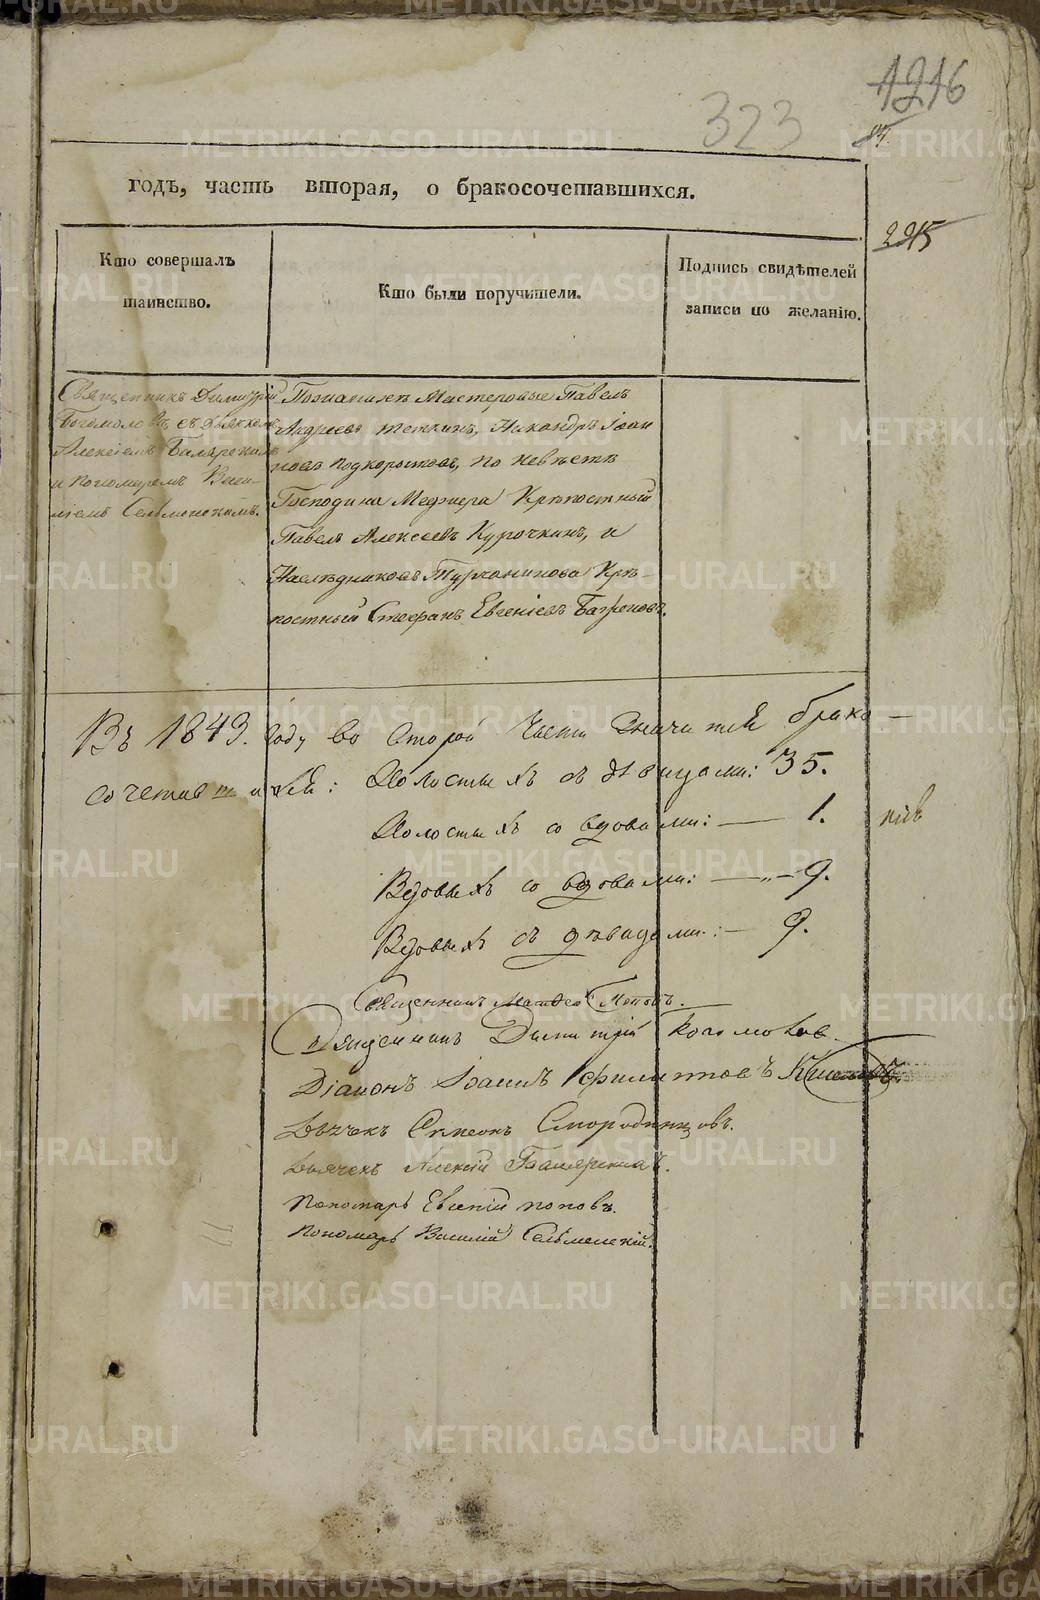 1216
323
годъ, часть вторая, о бракосочетавшихся.
215
Кто совершалъ
таинство.
Кто были поручители.
Подпись свидѣтелей
записи по желанію.
Священникъ Димитрій
Богомоловъ съ дьячкомъ
Алексіемъ
и пономаремъ Васи-
ліемъ Сельменскимъ.
По женихѣ Мастеровые Павелъ
Андреевъ Теткинъ, Никандръ Іоан
новъ Подкорытовъ, по невѣстѣ
Господина Меджера Крѣпостный
Павелъ Алексеевъ Курочкинъ, и
Наслѣдниковъ Турчанинова Крѣ-
постный Стефанъ Евгеніевъ
Въ 1843. году во второй части значится брако-
сочетавшихся: Холостыхъ съ дѣвицами: 35.
Холостыхъ со вдовами: — 1.
Вдовыхъ со вдовами: — „ — 9.
Вдовыхъ съ дѣвицами: — 9.
Священникъ Матвей Поповъ.
Священникъ Димитрій Богомоловъ.
Діаконъ Іоаннъ Филиповъ
Дьячекъ Симеонъ Смородинцовъ.
Дьячекъ Алексій
Пономарь Евгеній Поповъ.
Пономарь Василій Сельменскій.
METRIKI.GASO-URAL.RU